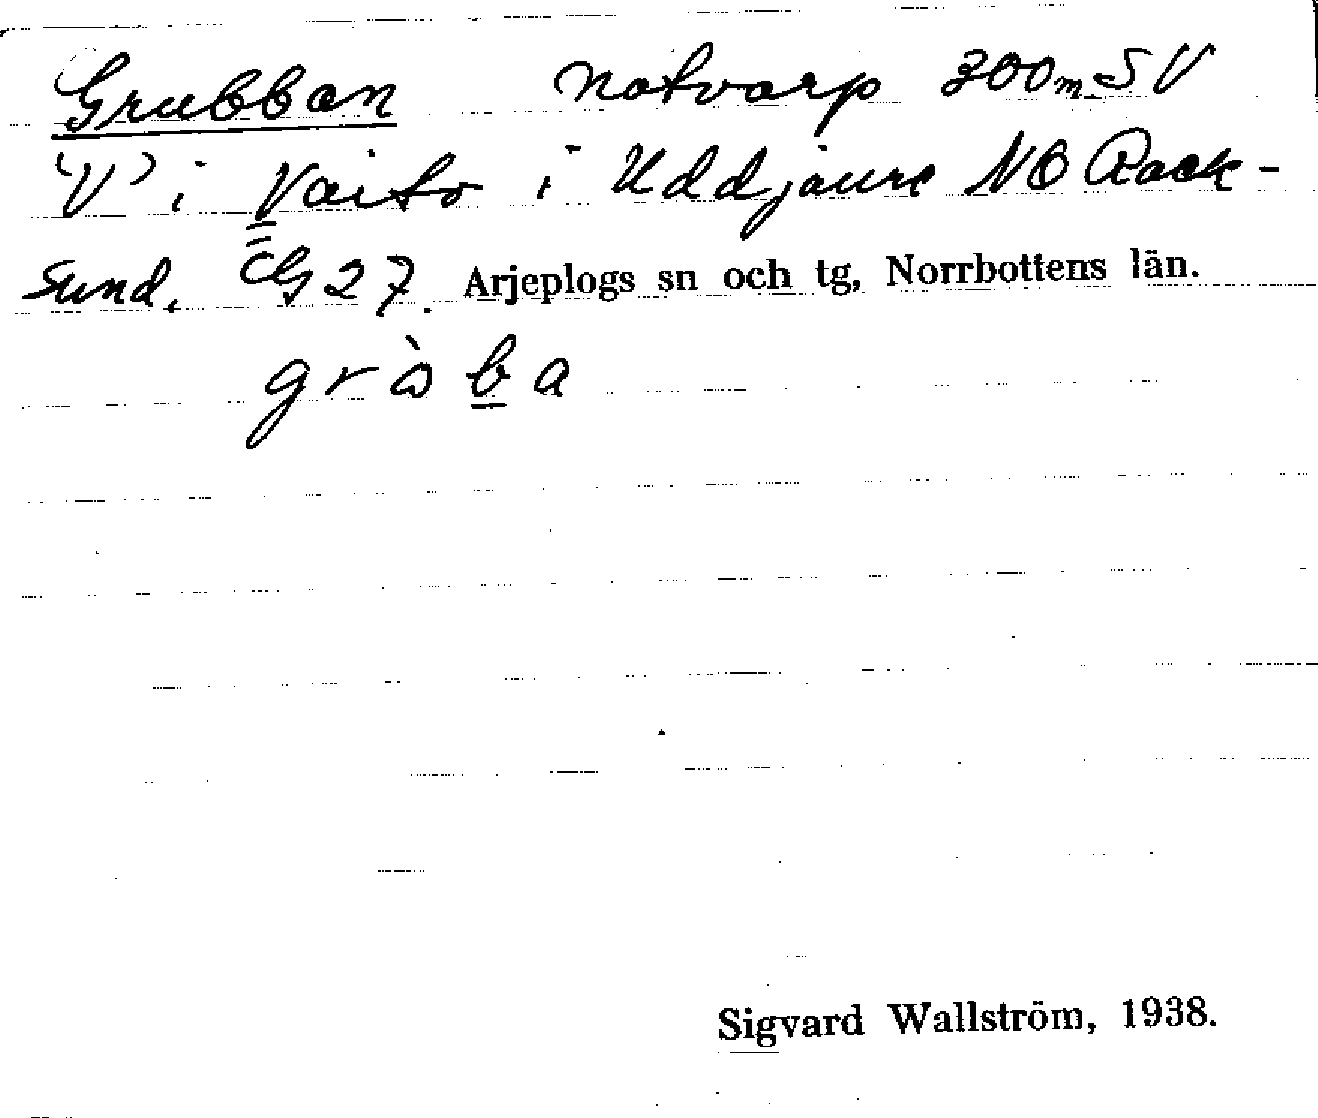 Grubban notvarp 300 m SV
"V" i Vaito i Uddjaure NO Rack-
sund. CG 27. Arjeplogs sn och tg, Norrbottens län.
gròba
Sigvard Wallström, 1938.